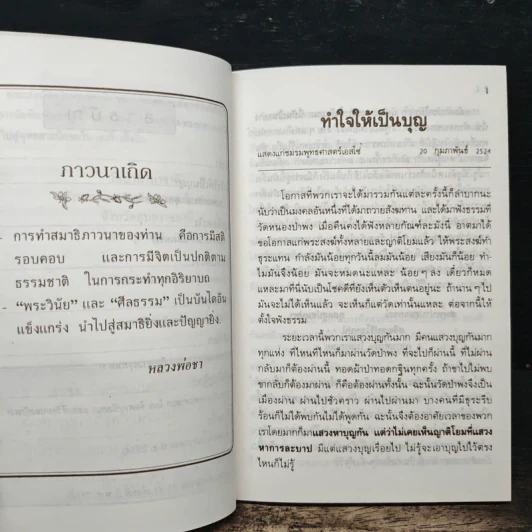 ภาวนาเถิด
การทำสมาธิภาวนาของท่าน คือการมีสติ
รอบคอบ และการมีจิตเป็นปกติตาม
ธรรมชาติ ในการกระทำทุกอิริยาบถ
“พระวินัย” และ “ศีลธรรม” เป็นบันไดอัน
แข็งแกร่ง นำไปสู่สมาธิยิ่งและปัญญายิ่ง.
หลวงพ่อชา
1
ทำใจให้เป็นบุญ
แสดงแก่ชมรมพุทธศาสตร์เอสโซ่ 20 กุมภาพันธ์ 2524
โอกาสที่พวกเราจะได้มารวมกันแต่ละครั้งนี้ก็ลำบากนะ
นับว่าเป็นมงคลอันหนึ่งที่ได้มาถวายสังฆทาน และได้มาฟังธรรมที่
วัดหนองป่าพง เมื่อคืนคงได้ฟังหลายกัณฑ์ละมังนี่ อาตมาได้
ขอโอกาสแก่พระสงฆ์ทั้งหลายและญาติโยมแล้ว ให้พระสงฆ์ทำ
ธุระแทน กำลังมันน้อยทุกวันนี้ลมมันน้อย เสียงมันก็น้อย ทำ
ไมมันจึงน้อย มันจะหมดนะแหละ น้อยๆ ลง เดี๋ยวก็หมด
แหละมาที่นี่นับเป็นโชคดีที่ยังเห็นตัวเห็นตนอยู่นะ ถ้านาน ๆ ไป
มันจะไม่ได้เห็นแล้ว จะเห็นก็แต่วัดเท่านั้นแหละ ต่อจากนี้ให้
ตั้งใจฟังธรรม
ระยะเวลานี้พวกเราแสวงบุญกันมาก มีคนแสวงบุญกันมาก
ทุกแห่ง ที่ไหนที่ไหนก็มาผ่านวัดป่าพง ที่จะไปก็ผ่านนี้ ที่ไม่ผ่าน
กลับมาก็ต้องผ่านนี้ ทอดผ้าป่าทอดกฐินทุกครั้ง ถ้าขาไปไม่พบ
ขากลับก็ต้องมาผ่าน ก็คือต้องผ่านทั้งนั้น ฉะนั้นวัดป่าพงจึงเป็น
เมืองผ่าน ผ่านไปชั่วคราว ผ่านไปผ่านมา บางคนที่มีธุระรีบ
ร้อนก็ไม่ได้พบกันไม่ได้พูดกัน ฉะนั้นจึงต้องอาศัยเวลาของพวก
เราโดยมากก็มาแสวงหาบุญกัน แต่ว่าไม่เคยเห็นญาติโยมที่แสวง
หาการละบาป มีแต่แสวงบุญเรื่อยไป ไม่รู้จะเอาบุญไปไว้ตรง
ไหนก็ไม่รู้